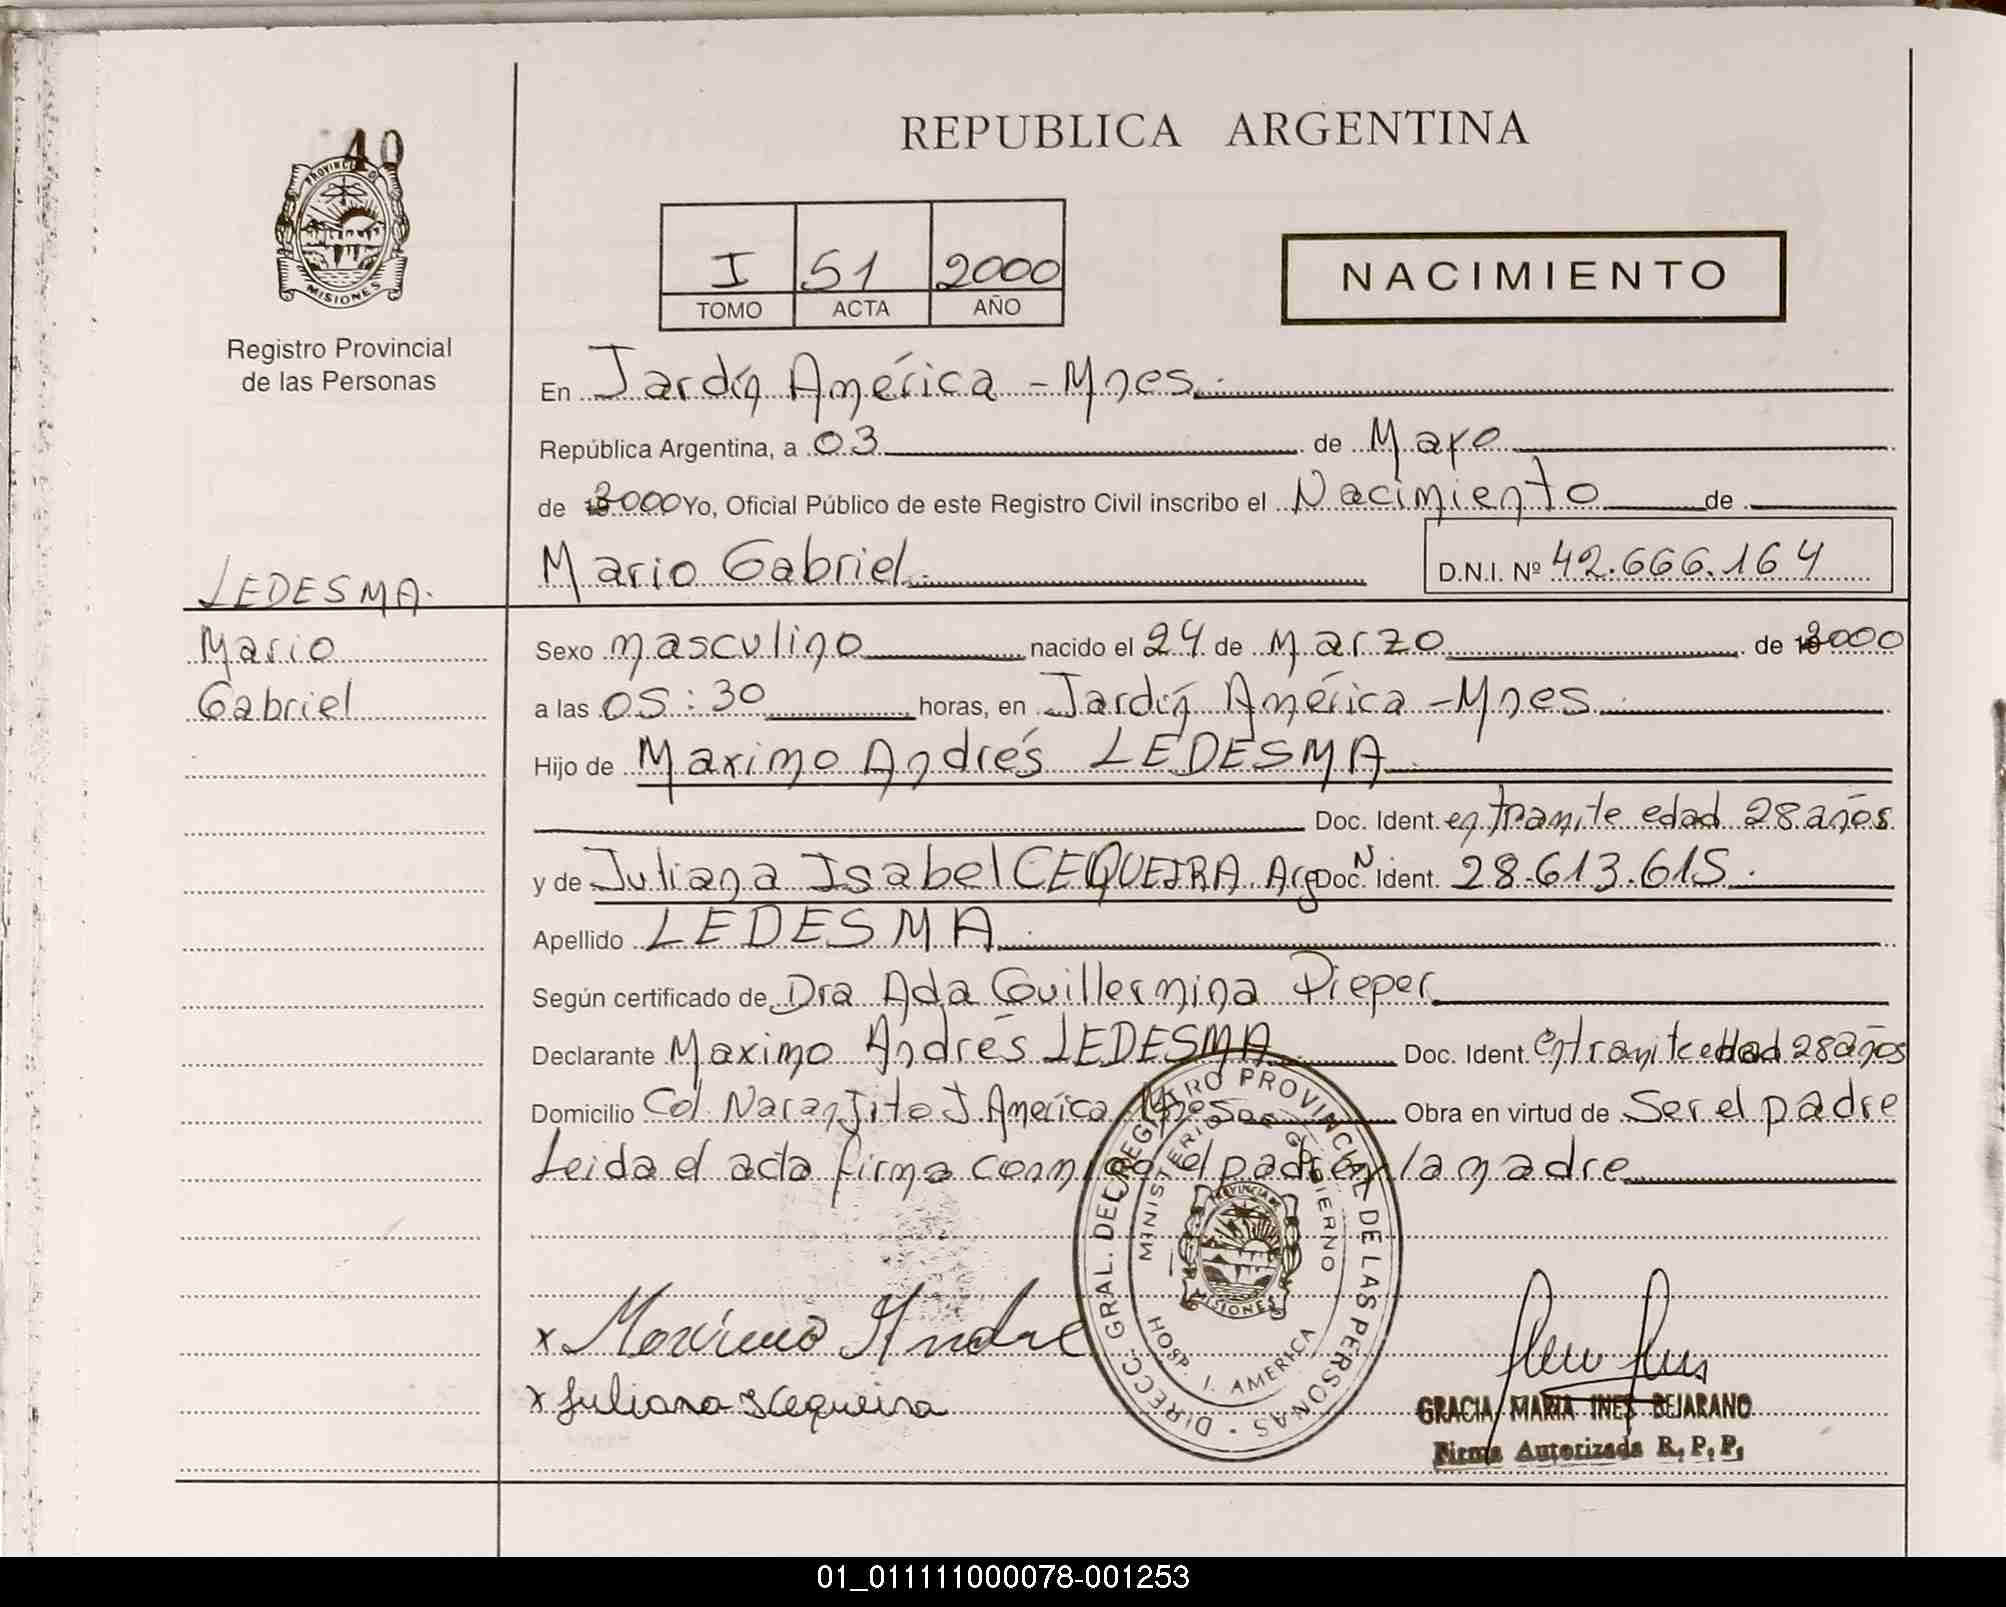 10
PROVINCIA DE
MISIONES
Registro Provincial
de las Personas
LEDESMA.
Mario
Gabriel
REPUBLICA ARGENTINA
I 51 2000
TOMO ACTA AÑO
NACIMIENTO
En Jardín América - Mnes.
República Argentina, a 03 de Mayo
de 2000 Yo, Oficial Público de este Registro Civil inscribo el Nacimiento de
Mario Gabriel. D.N.I. Nº 42.666.164
Sexo masculino nacido el 24 de Marzo de 2000
a las 05:30 horas, en Jardín América - Mnes.
Hijo de Maximo Andrés LEDESMA
Doc. Ident. en tramite edad 28 años
y de Juliana Isabel CEQUEIRA Arg Doc. N Ident. 28.613.615.
Apellido LEDESMA
Según certificado de Dra Ada Guillermina Pieper
Declarante Maximo Andrés LEDESMA Doc. Ident. en tramite edad 28 años
Domicilio Col. Naranjito J. América Mnes Obra en virtud de Ser el padre
Leida el acta firma conmigo el padre y la madre
DIRECC. GRAL. DEL REGISTRO PROVINCIAL DE LAS PERSONAS
MINISTERIO DE GOBIERNO
PROVINCIA DE
MISIONES
HOSP. J. AMERICA
x Maximo Andre
x Juliana I Cequeira
GRACIA MARIA INES BEJARANO
Firma Autorizada R. P. P.
01_011111000078-001253